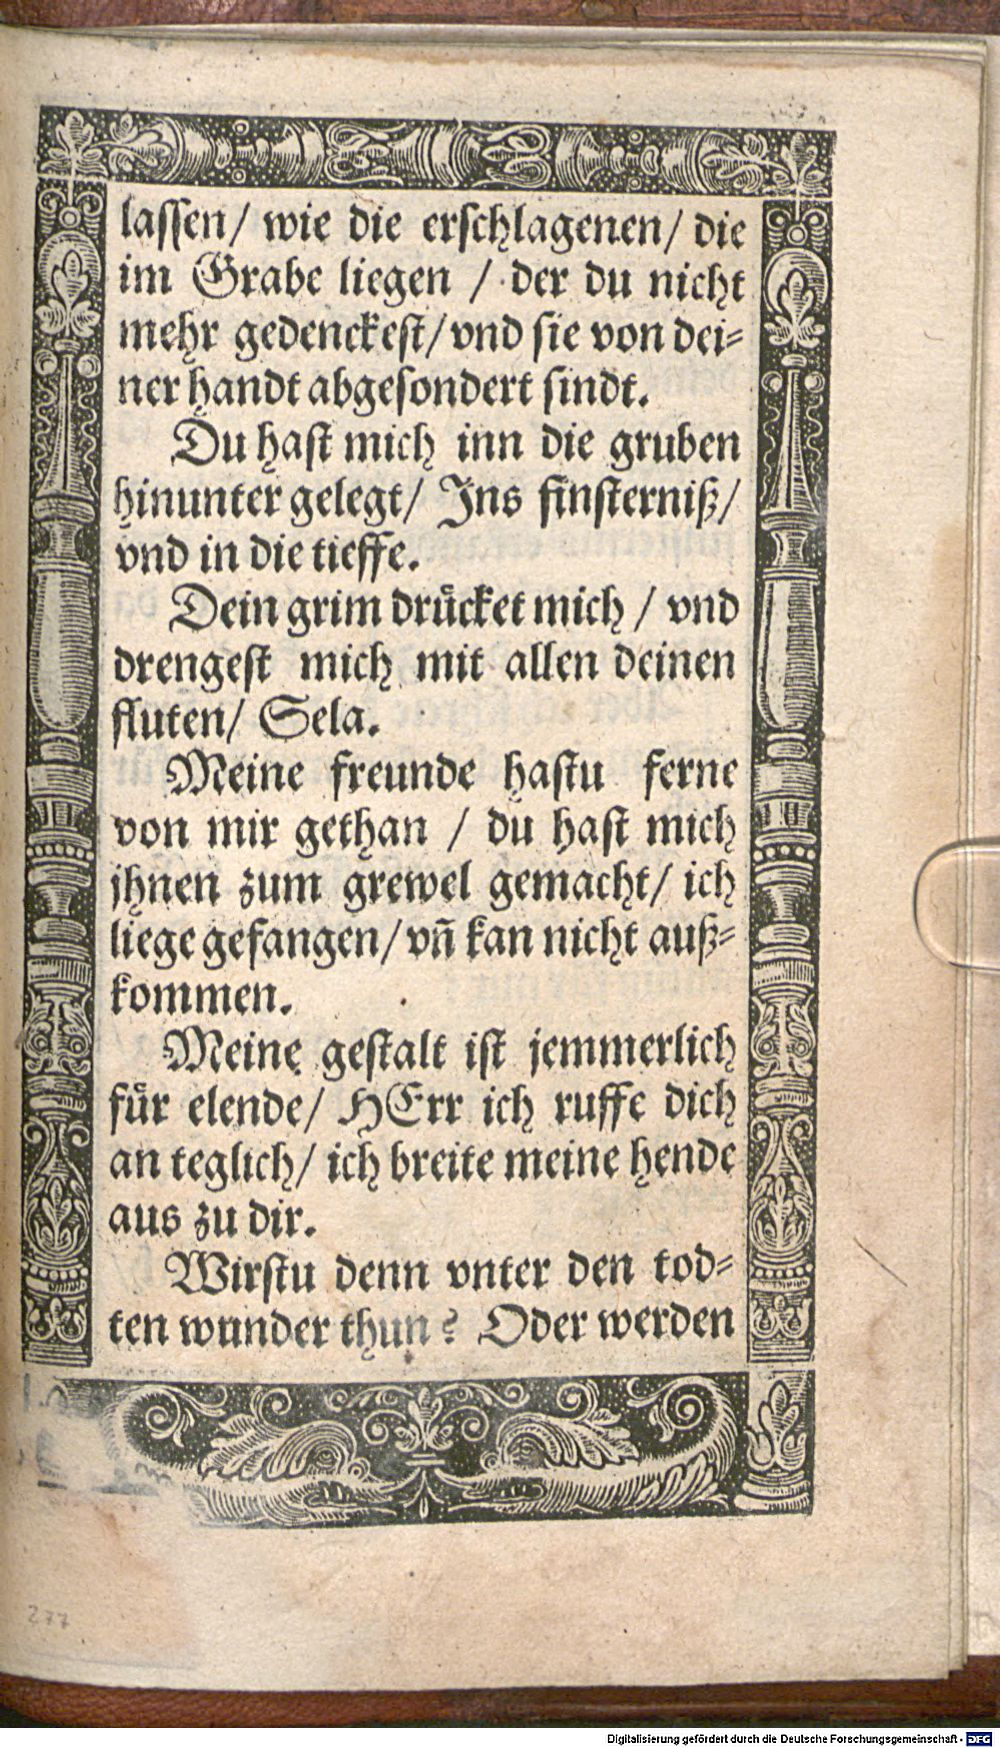 lassen/ wie die erschlagenen/ die
im Grabe liegen / der du nicht
mehr gedenckest/ vnd sie von dei=
ner handt abgesondert sindt.
Du hast mich inn die gruben
hinunter gelegt/ Ins finsterniß/
vnd in die tieffe.
Dein grim druͤcket mich / vnd
drengest mich mit allen deinen
fluten/ Sela.
Meine freunde hastu ferne
von mir gethan / du hast mich
jhnen zum grewel gemacht/ ich
liege gefangen/ vñ kan nicht auß=
kommen.
Meine gestalt ist jemmerlich
fuͤr elende/ HErr ich ruffe dich
an teglich/ ich breite meine hende
aus zu dir.
Wirstu denn vnter den tod=
ten wunder thun? Oder werden
277
Digitalisierung gefördert durch die Deutsche Forschungsgemeinschaft - DFG